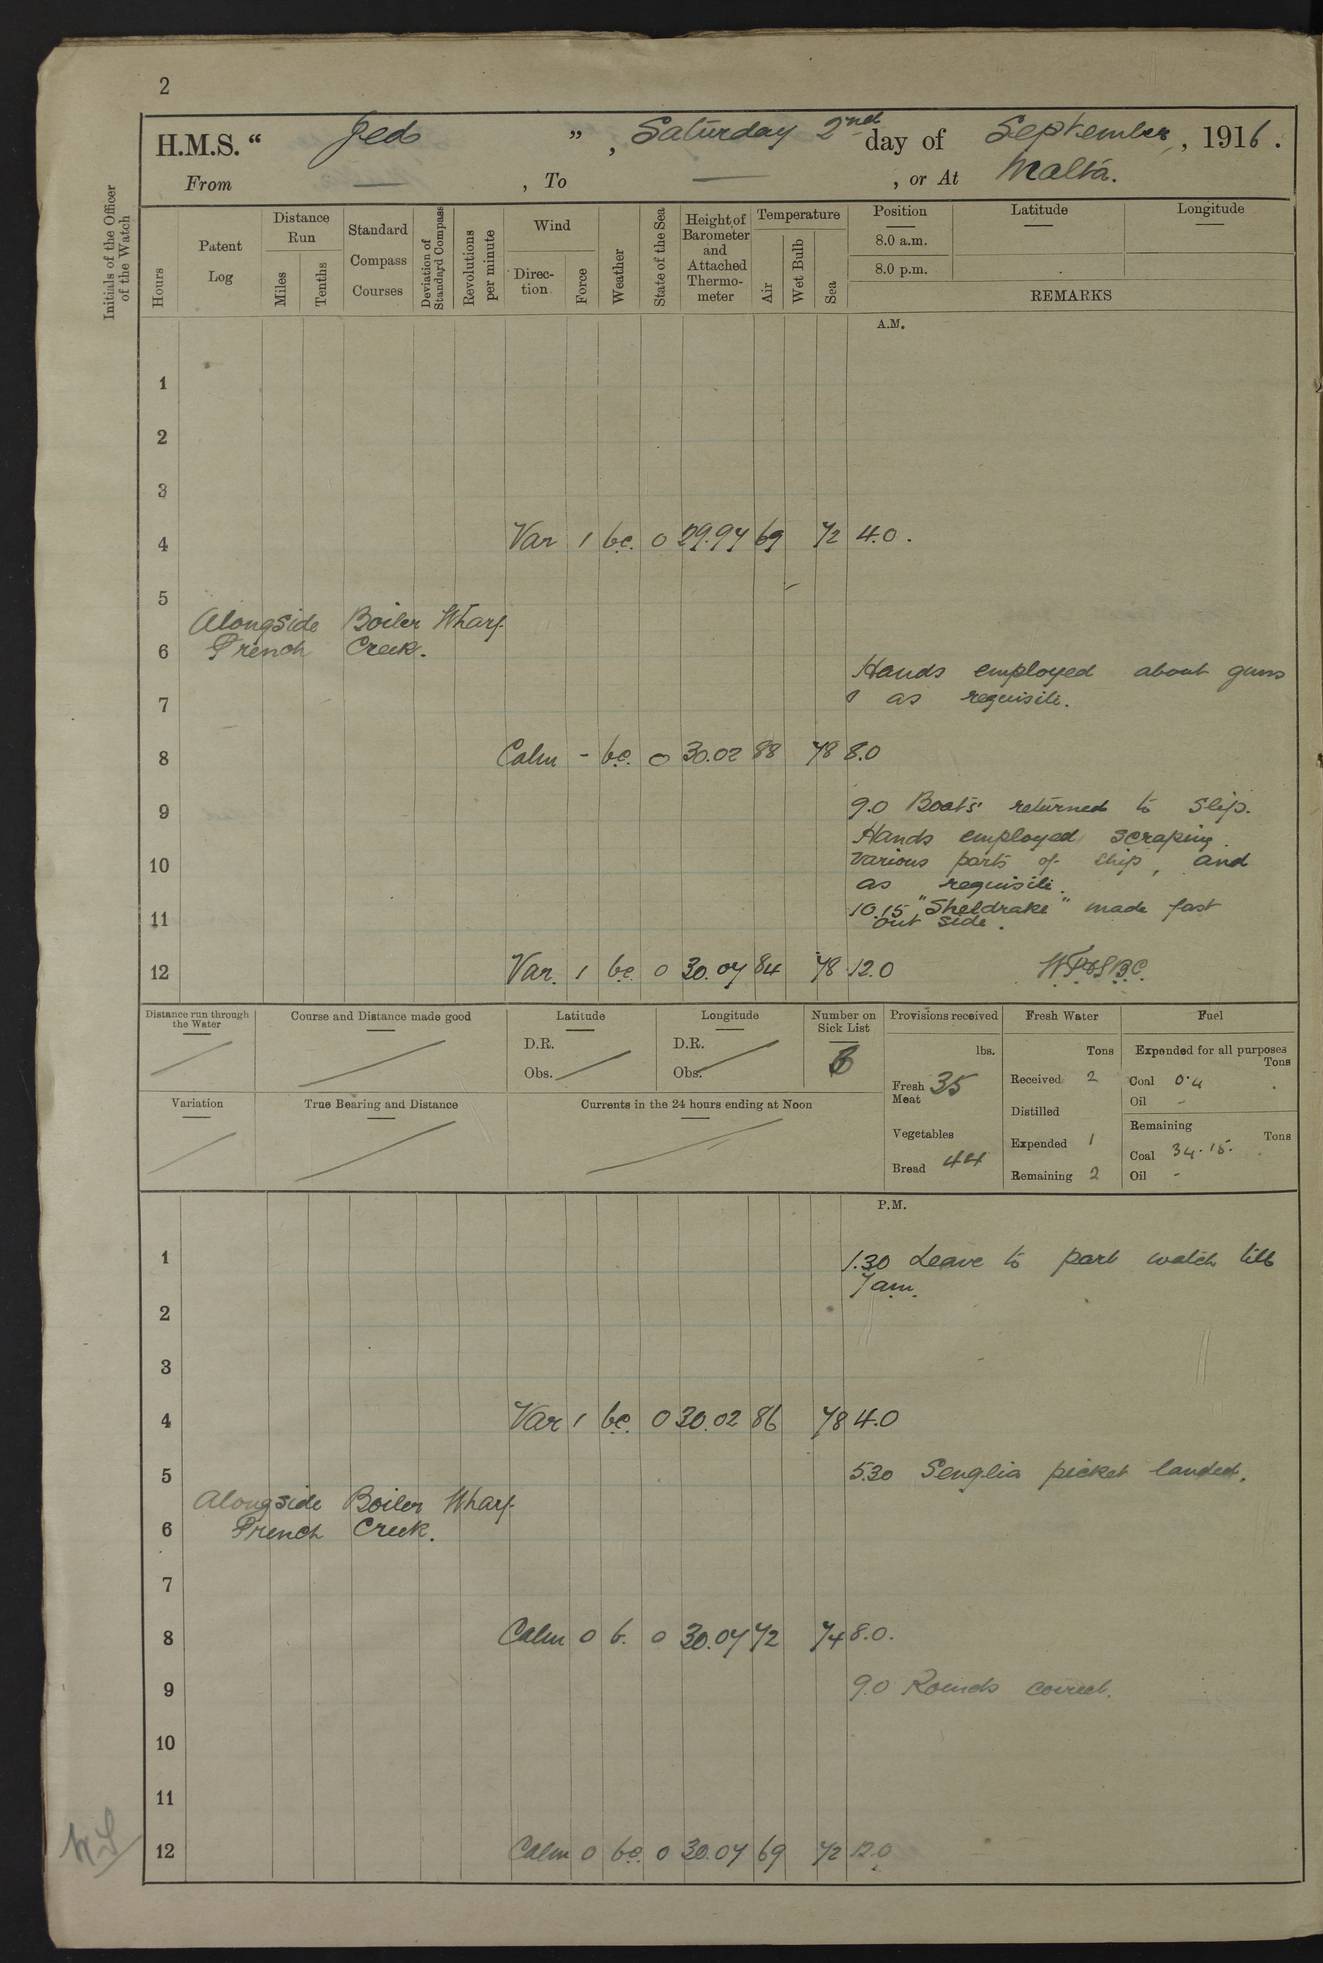 2
H.M.S. “ Jed ” , Saturday 2nd day of September , 1916 .
From — , To — , or At Malta.
Initials of the Officer of the Watch
Hours
Patent Log
Distance Run
Miles
Tenths
Standard Compass Courses
Deviation of Standard Compass
Revolutions per minute
Wind
Direction
Force
Weather
State of the Sea
Height of Barometer and Attached Thermometer
Temperature
Air
Wet Bulb
Sea
Position
8.0 a.m.
8.0 p.m.
Latitude
Longitude
REMARKS
A.M.
1
2
3
4 Var 1 bc. 0 29.97 69 72 4.0.
5
Alongside Boiler Wharf
6 French Creek.
Hands employed about guns
7 & as requisite.
8 Calm - bc. 0 30.02 88 78 8.0
9 9.0 Boats returned to slip.
Hands employed scraping
10 various parts of ship, and
as requisite.
11 10.15 "Sheldrake" made fast
out side.
12 Var. 1 bc 0 30.07 84 78 12.0
Distance run through the Water
Course and Distance made good
Latitude
D.R.
Obs.
Longitude
D.R.
Obs.
Number on Sick List
Provisions received
lbs.
Fresh Meat 35
Vegetables
Bread 44
Fresh Water
Tons
Received 2
Distilled
Expended 1
Remaining 2
Fuel
Expended for all purposes
Tons
Coal 0.4
Oil -
Remaining
Tons
Coal 34.15.
Oil -
Variation
True Bearing and Distance
Currents in the 24 hours ending at Noon
P.M.
1 1.30 Leave to part watch till
7am.
2
3
4 Var 1 bc. 0 30.02 86 78 4.0
5 5.30 Senglia picket landed.
Alongside Boiler Wharf
6 French Creek.
7
8 Calm 0 b. 0 30.07 72 74 8.0.
9 9.0 Rounds correct.
10
11
12 Calm 0 bc. 0 30.07 69 72 12.0